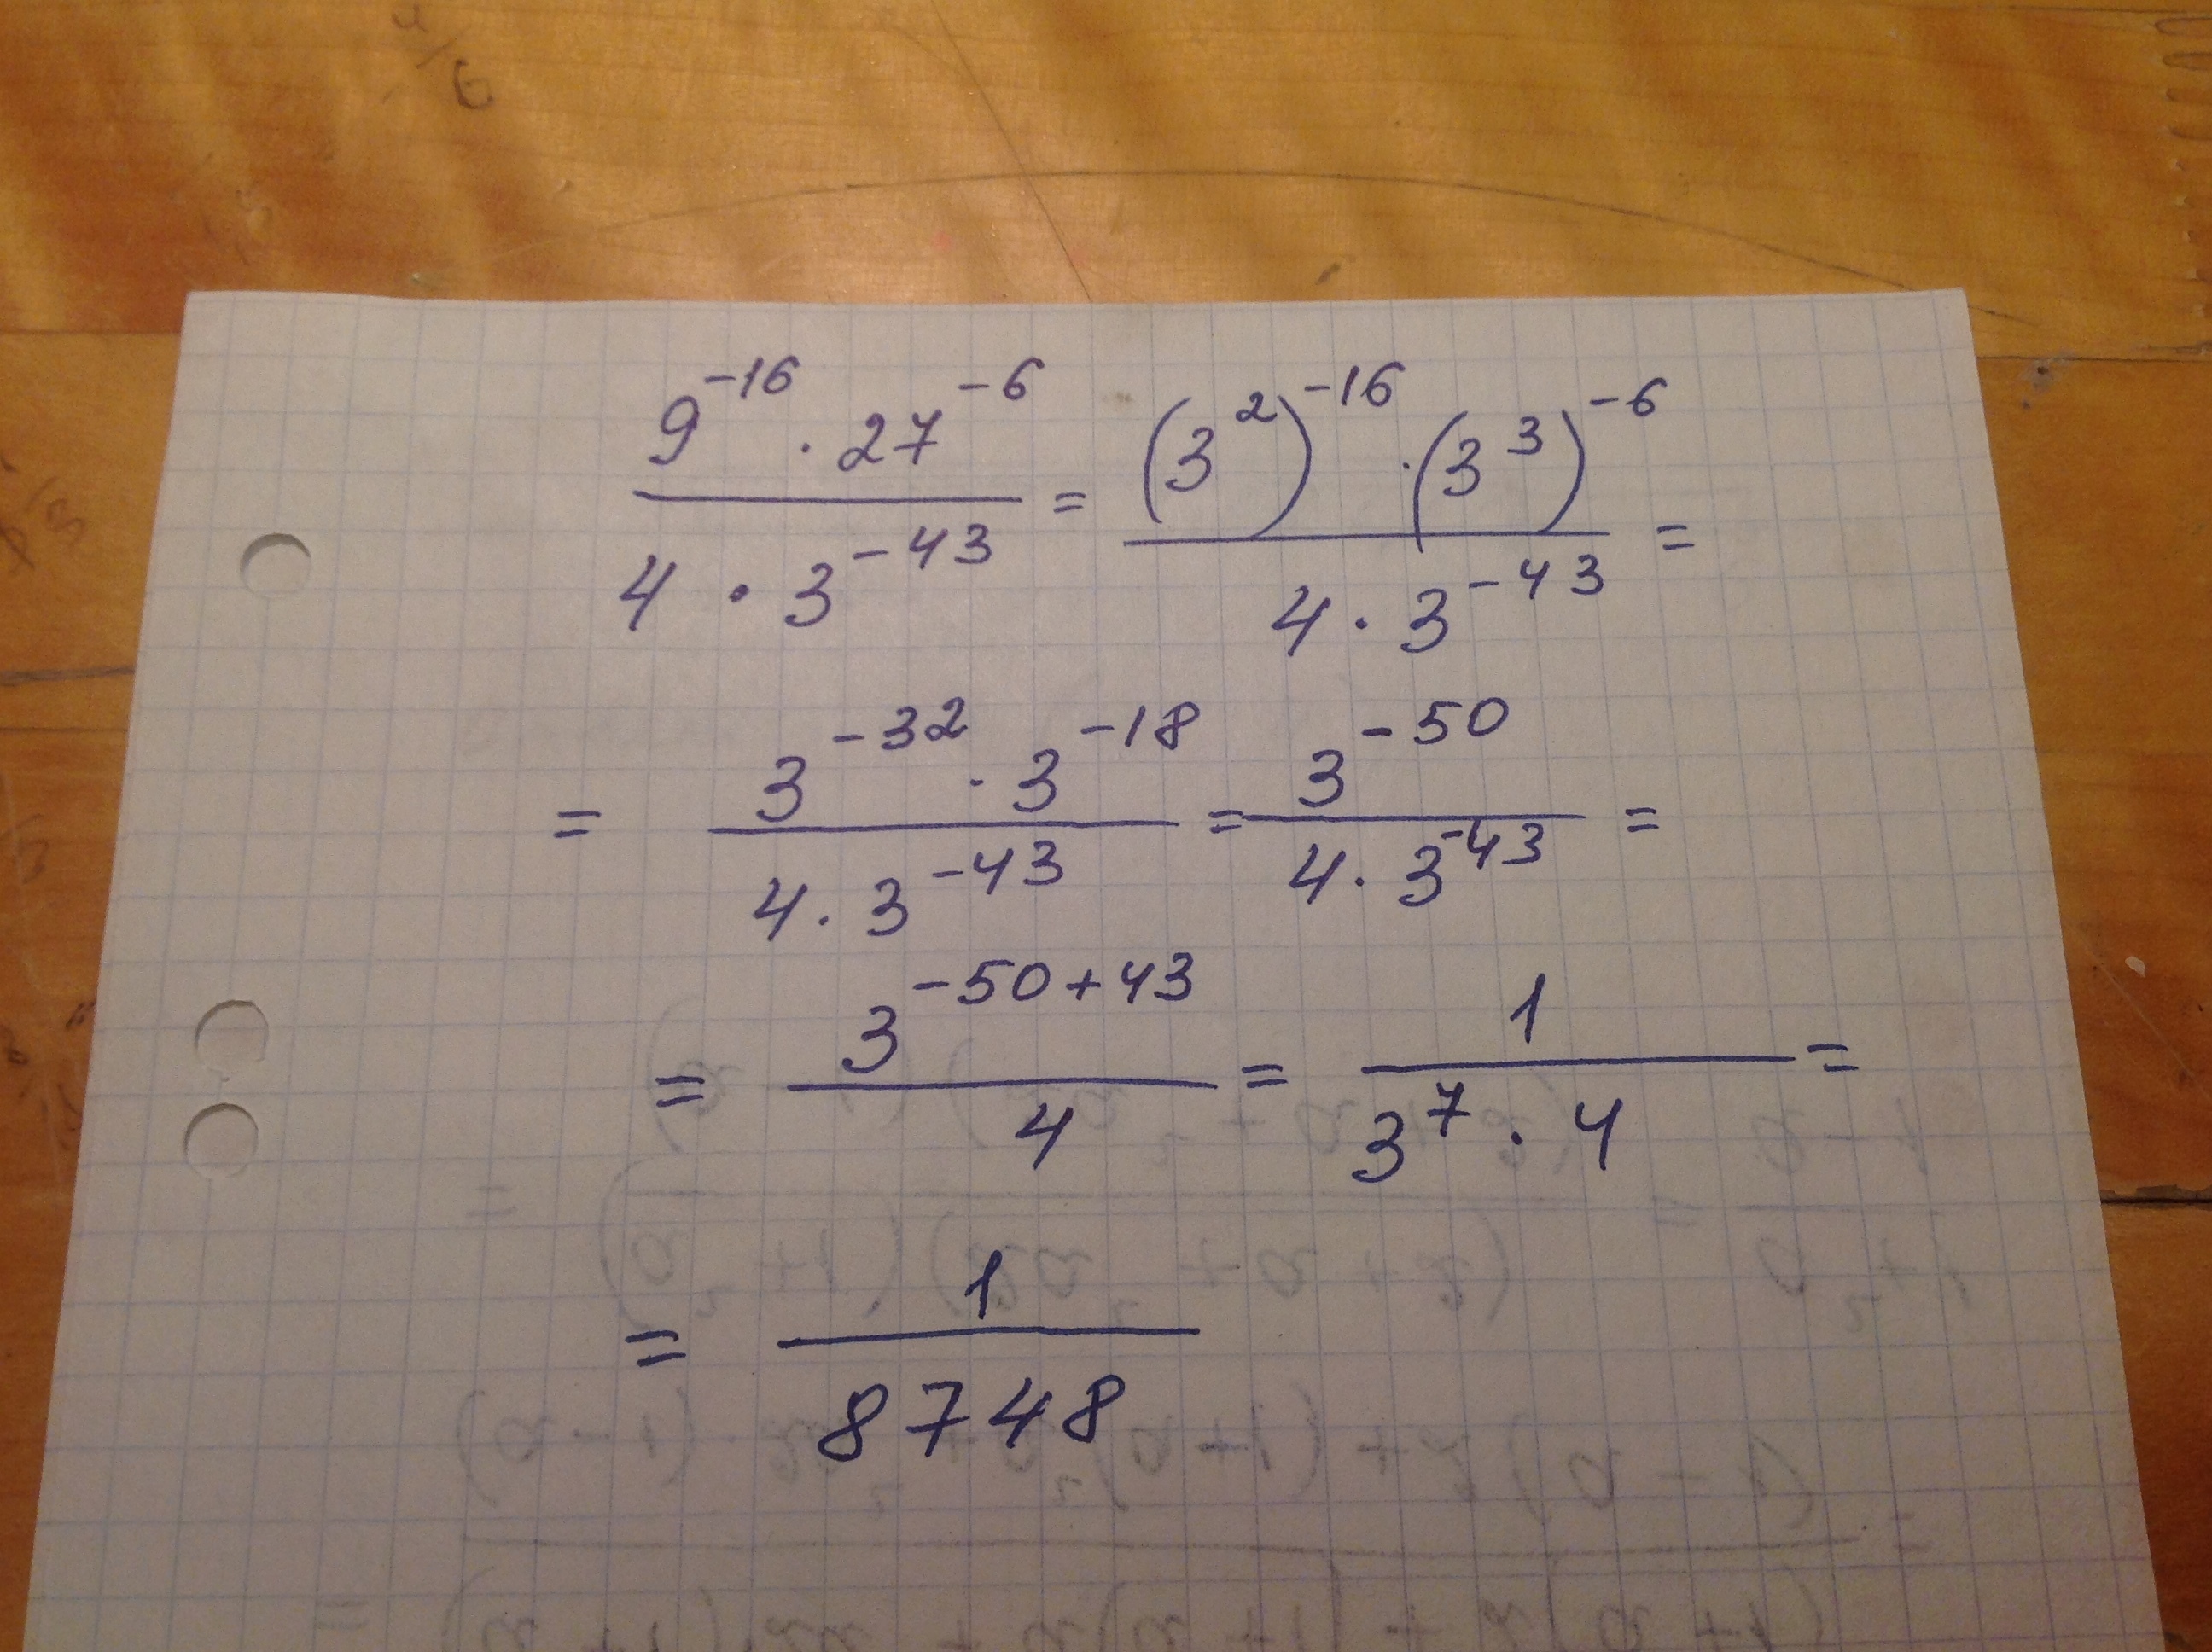 9^-16 · 27^-6 / 4 · 3^-43 = (3^2)^-16 · (3^3)^-6 / 4 · 3^-43 =
= 3^-32 · 3^-18 / 4 · 3^-43 = 3^-50 / 4 · 3^-43 =
= 3^-50+43 / 4 = 1 / 3^7 · 4 =
= 1 / 8748